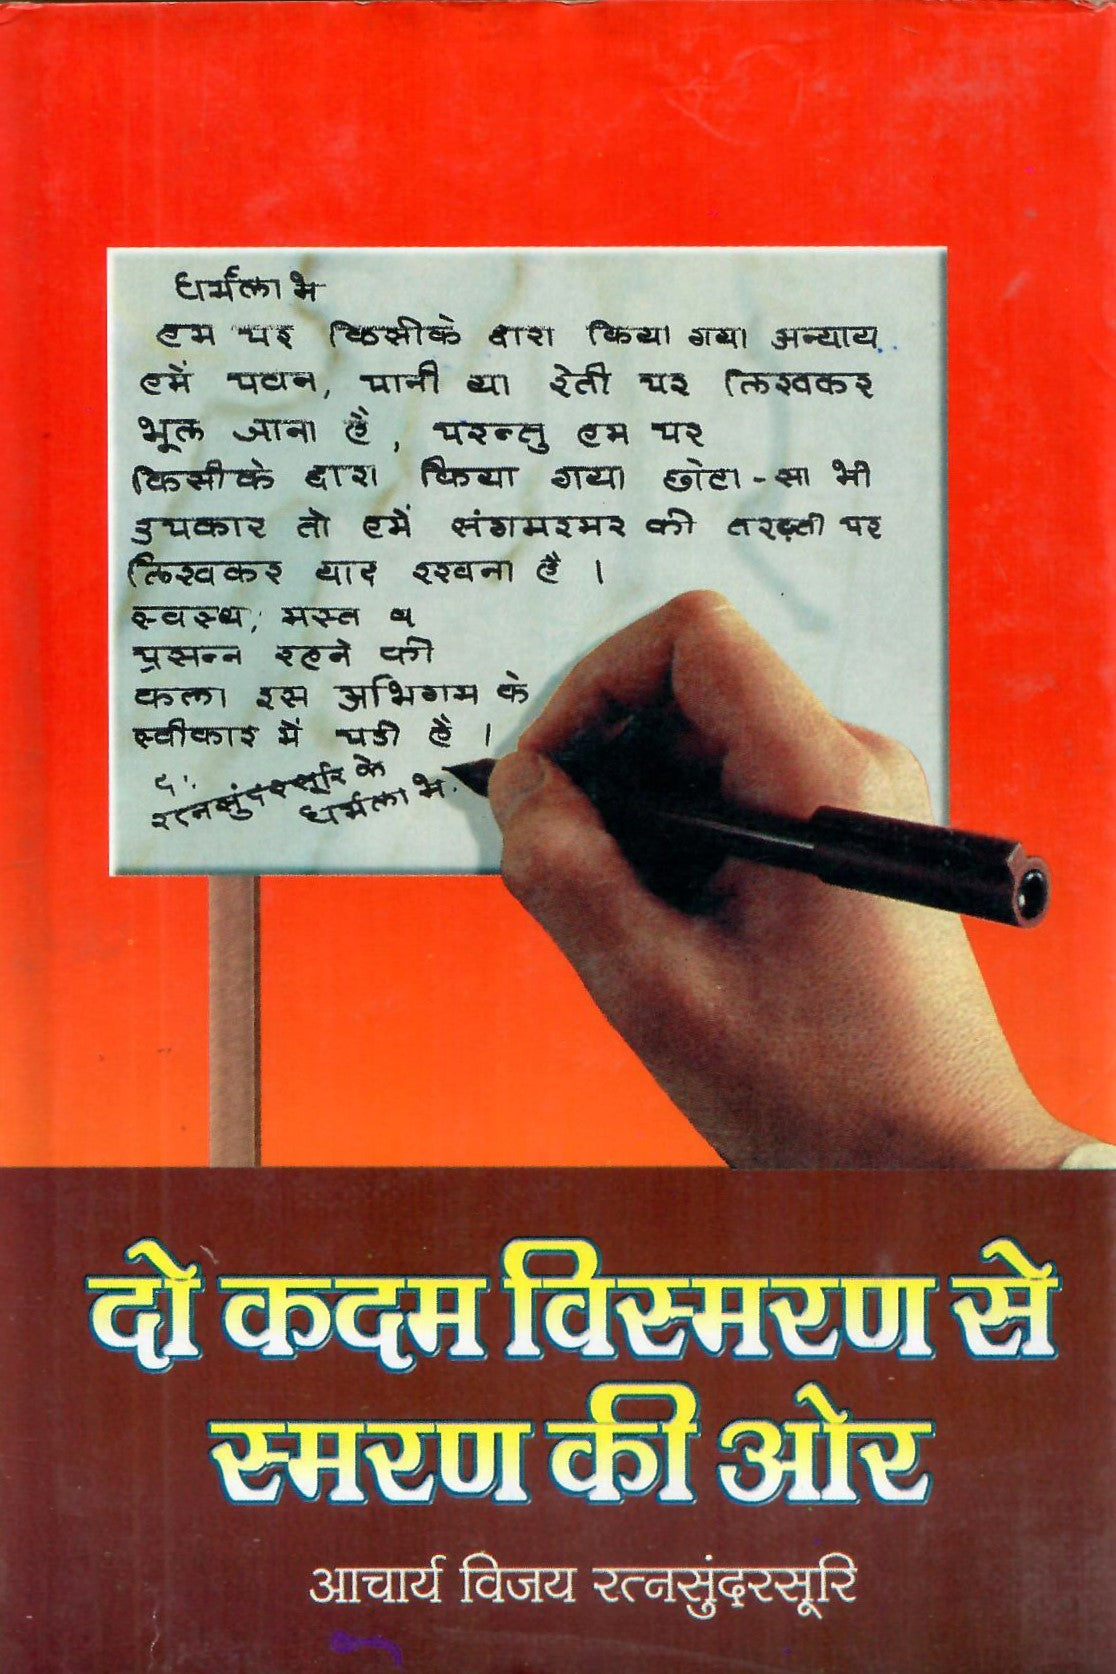 धर्मलाभ
हम पर किसीके द्वारा किया गया अन्याय
हमें पवन, पानी या रेती पर लिखकर
भूल जाना है, परन्तु हम पर
किसीके द्वारा किया गया छोटा-सा भी
उपकार तो हमें संगमरमर की तख़्ती पर
लिखकर याद रखना है ।
स्वस्थ, मस्त व
प्रसन्न रहने की
कला इस अभिगम के
स्वीकार में पडी है ।
द:
रत्नसुंदरसूरि के
धर्मलाभ.
दो कदम विस्मरण से
स्मरण की ओर
आचार्य विजय रत्नसुंदरसूरि